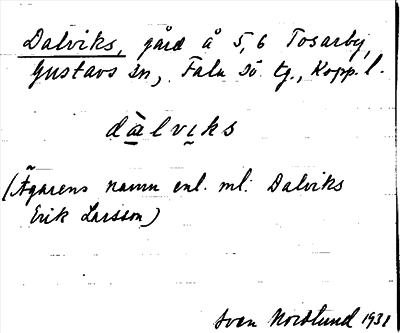 Dalviks, gård å 5, 6 Tosarby,
Gustavs sn, Falu Sö tg., Kopp. l.
dàlvɩks
(Ägarens namn enl. ml: Dalviks
Erik Larsson)
Sven Nordlund 1931